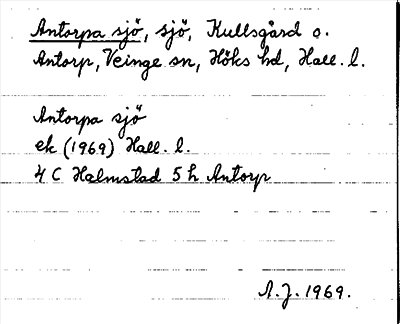 Antorpa sjö, sjö, Kullsgård o.
Antorp, Veinge sn, Höks hd, Hall. l.
Antorpa sjö
ek (1969) Hall. l.
4 C Halmstad 5 h Antorp
A.J. 1969.